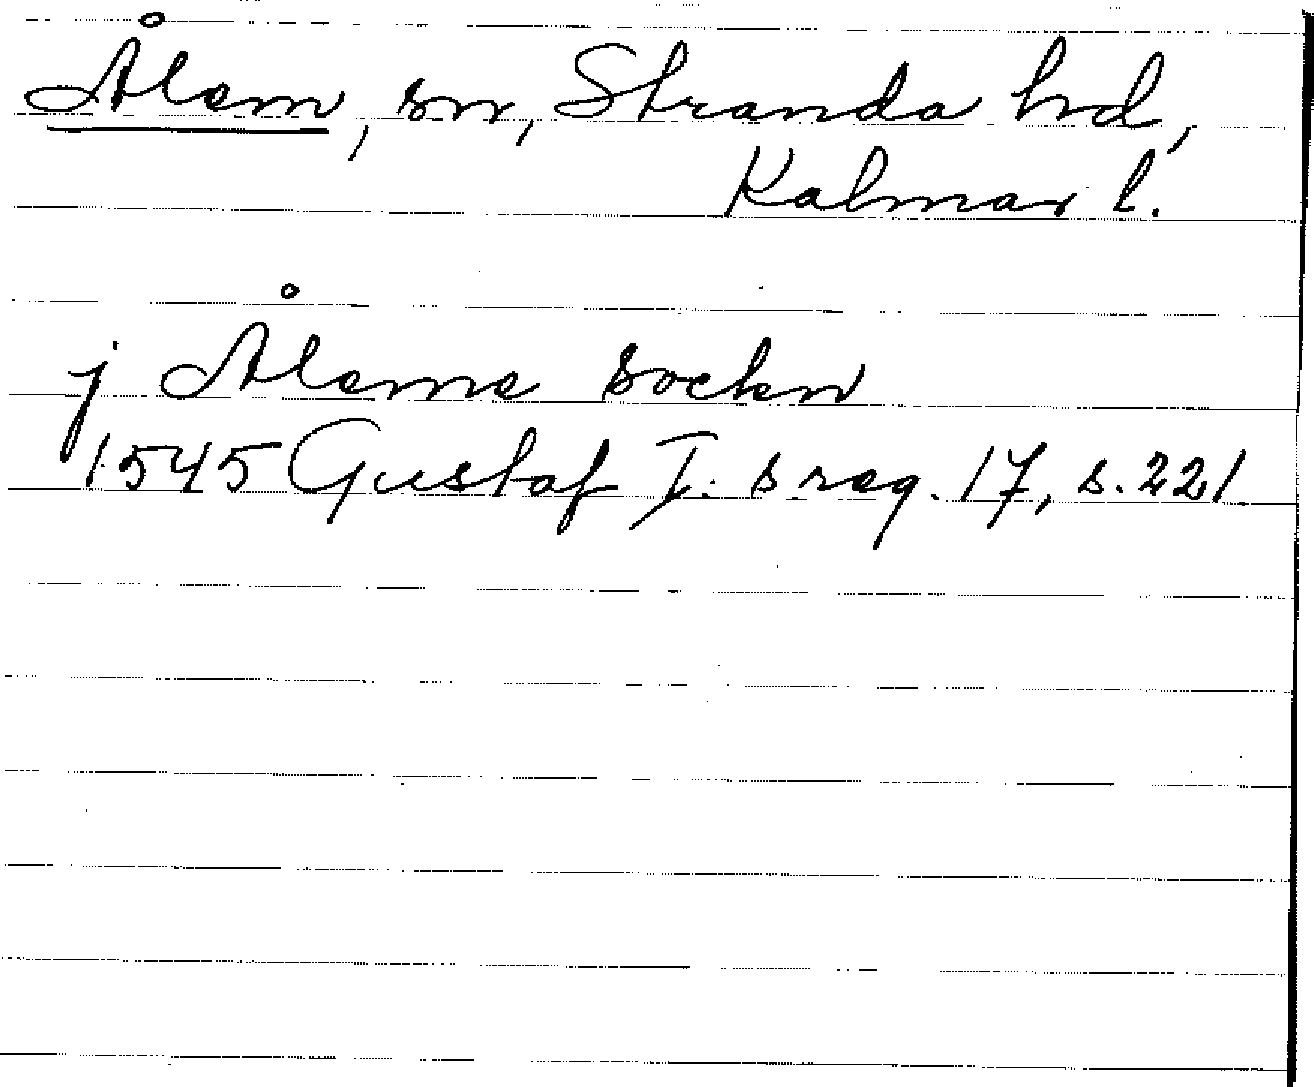 Ålem, sn, Stranda hd,
Kalmar l.
j Åleme sockn
1545 Gustaf I:s reg. 17, s. 221